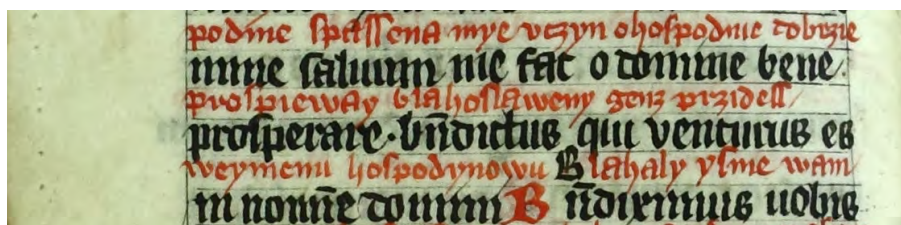 podine spassena mye vczyn ohospodine dobrzie
mine saluum me fac o domine bene
prospieway blahoslaweny genz przidess
prosperare · bn̄dictus qui venturus es
weymenu hospodynowu Blahaly ysme wam
in nom̄e domini Bn̄diximus uobis